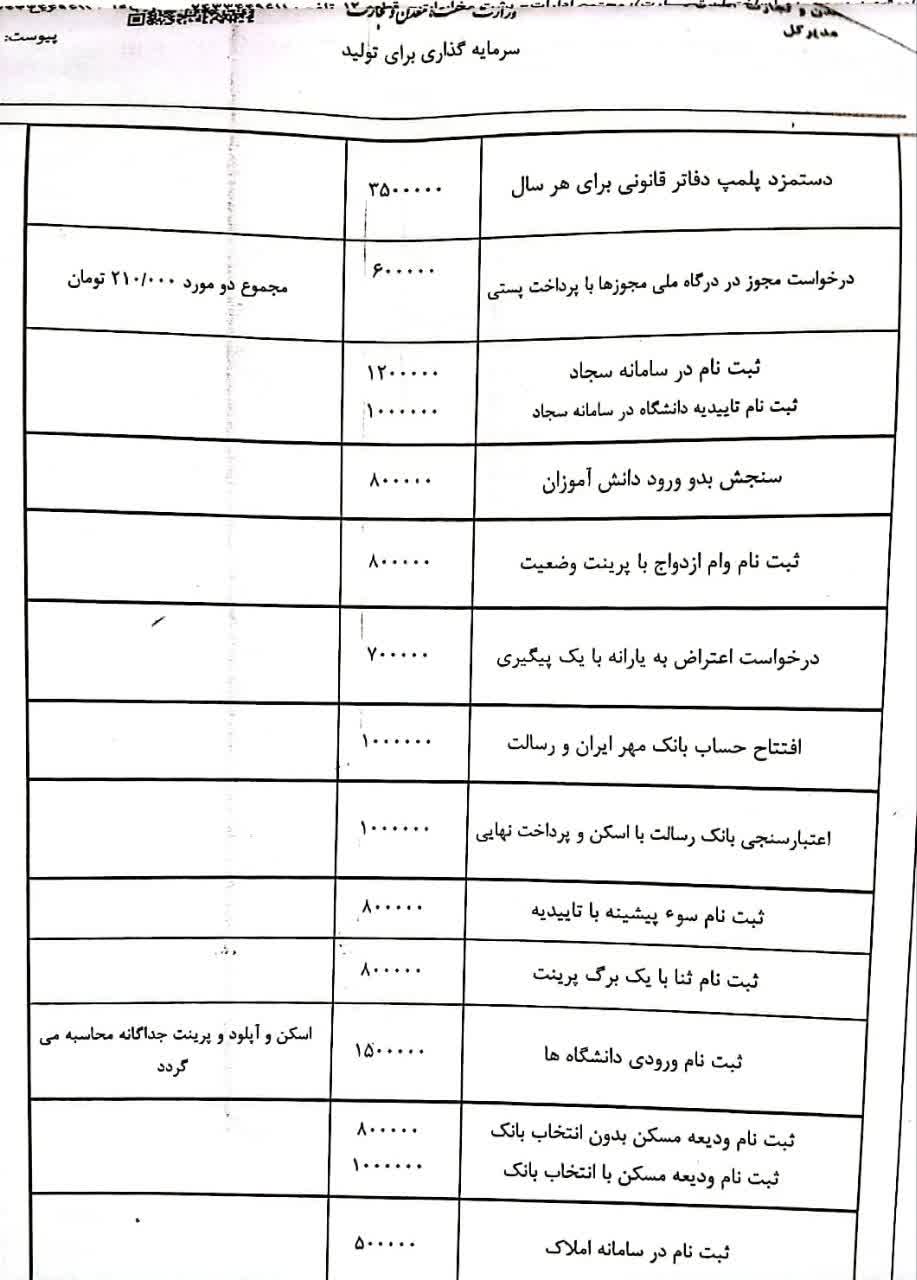 مدیر کل
وزارت صنعت، معدن و تجارت
سرمایه گذاری برای تولید
پیوست:
دستمزد پلمپ دفاتر قانونی برای هر سال ۳۵۰۰۰۰۰
درخواست مجوز در درگاه ملی مجوزها با پرداخت پستی ۶۰۰۰۰۰ مجموع دو مورد ۲۱۰/۰۰۰ تومان
ثبت نام در سامانه سجاد ۱۲۰۰۰۰۰
ثبت نام تاییدیه دانشگاه در سامانه سجاد ۱۰۰۰۰۰۰
سنجش بدو ورود دانش آموزان ۸۰۰۰۰۰
ثبت نام وام ازدواج با پرینت وضعیت ۸۰۰۰۰۰
درخواست اعتراض به یارانه با یک پیگیری ۷۰۰۰۰۰
افتتاح حساب بانک مهر ایران و رسالت ۱۰۰۰۰۰۰
اعتبارسنجی بانک رسالت با اسکن و پرداخت نهایی ۱۰۰۰۰۰۰
ثبت نام سوء پیشینه با تاییدیه ۸۰۰۰۰۰
ثبت نام ثنا با یک برگ پرینت ۸۰۰۰۰۰
ثبت نام ورودی دانشگاه ها ۱۵۰۰۰۰۰ اسکن و آپلود و پرینت جداگانه محاسبه می
گردد
ثبت نام ودیعه مسکن بدون انتخاب بانک ۸۰۰۰۰۰
ثبت نام ودیعه مسکن با انتخاب بانک ۱۰۰۰۰۰۰
ثبت نام در سامانه املاک ۵۰۰۰۰۰